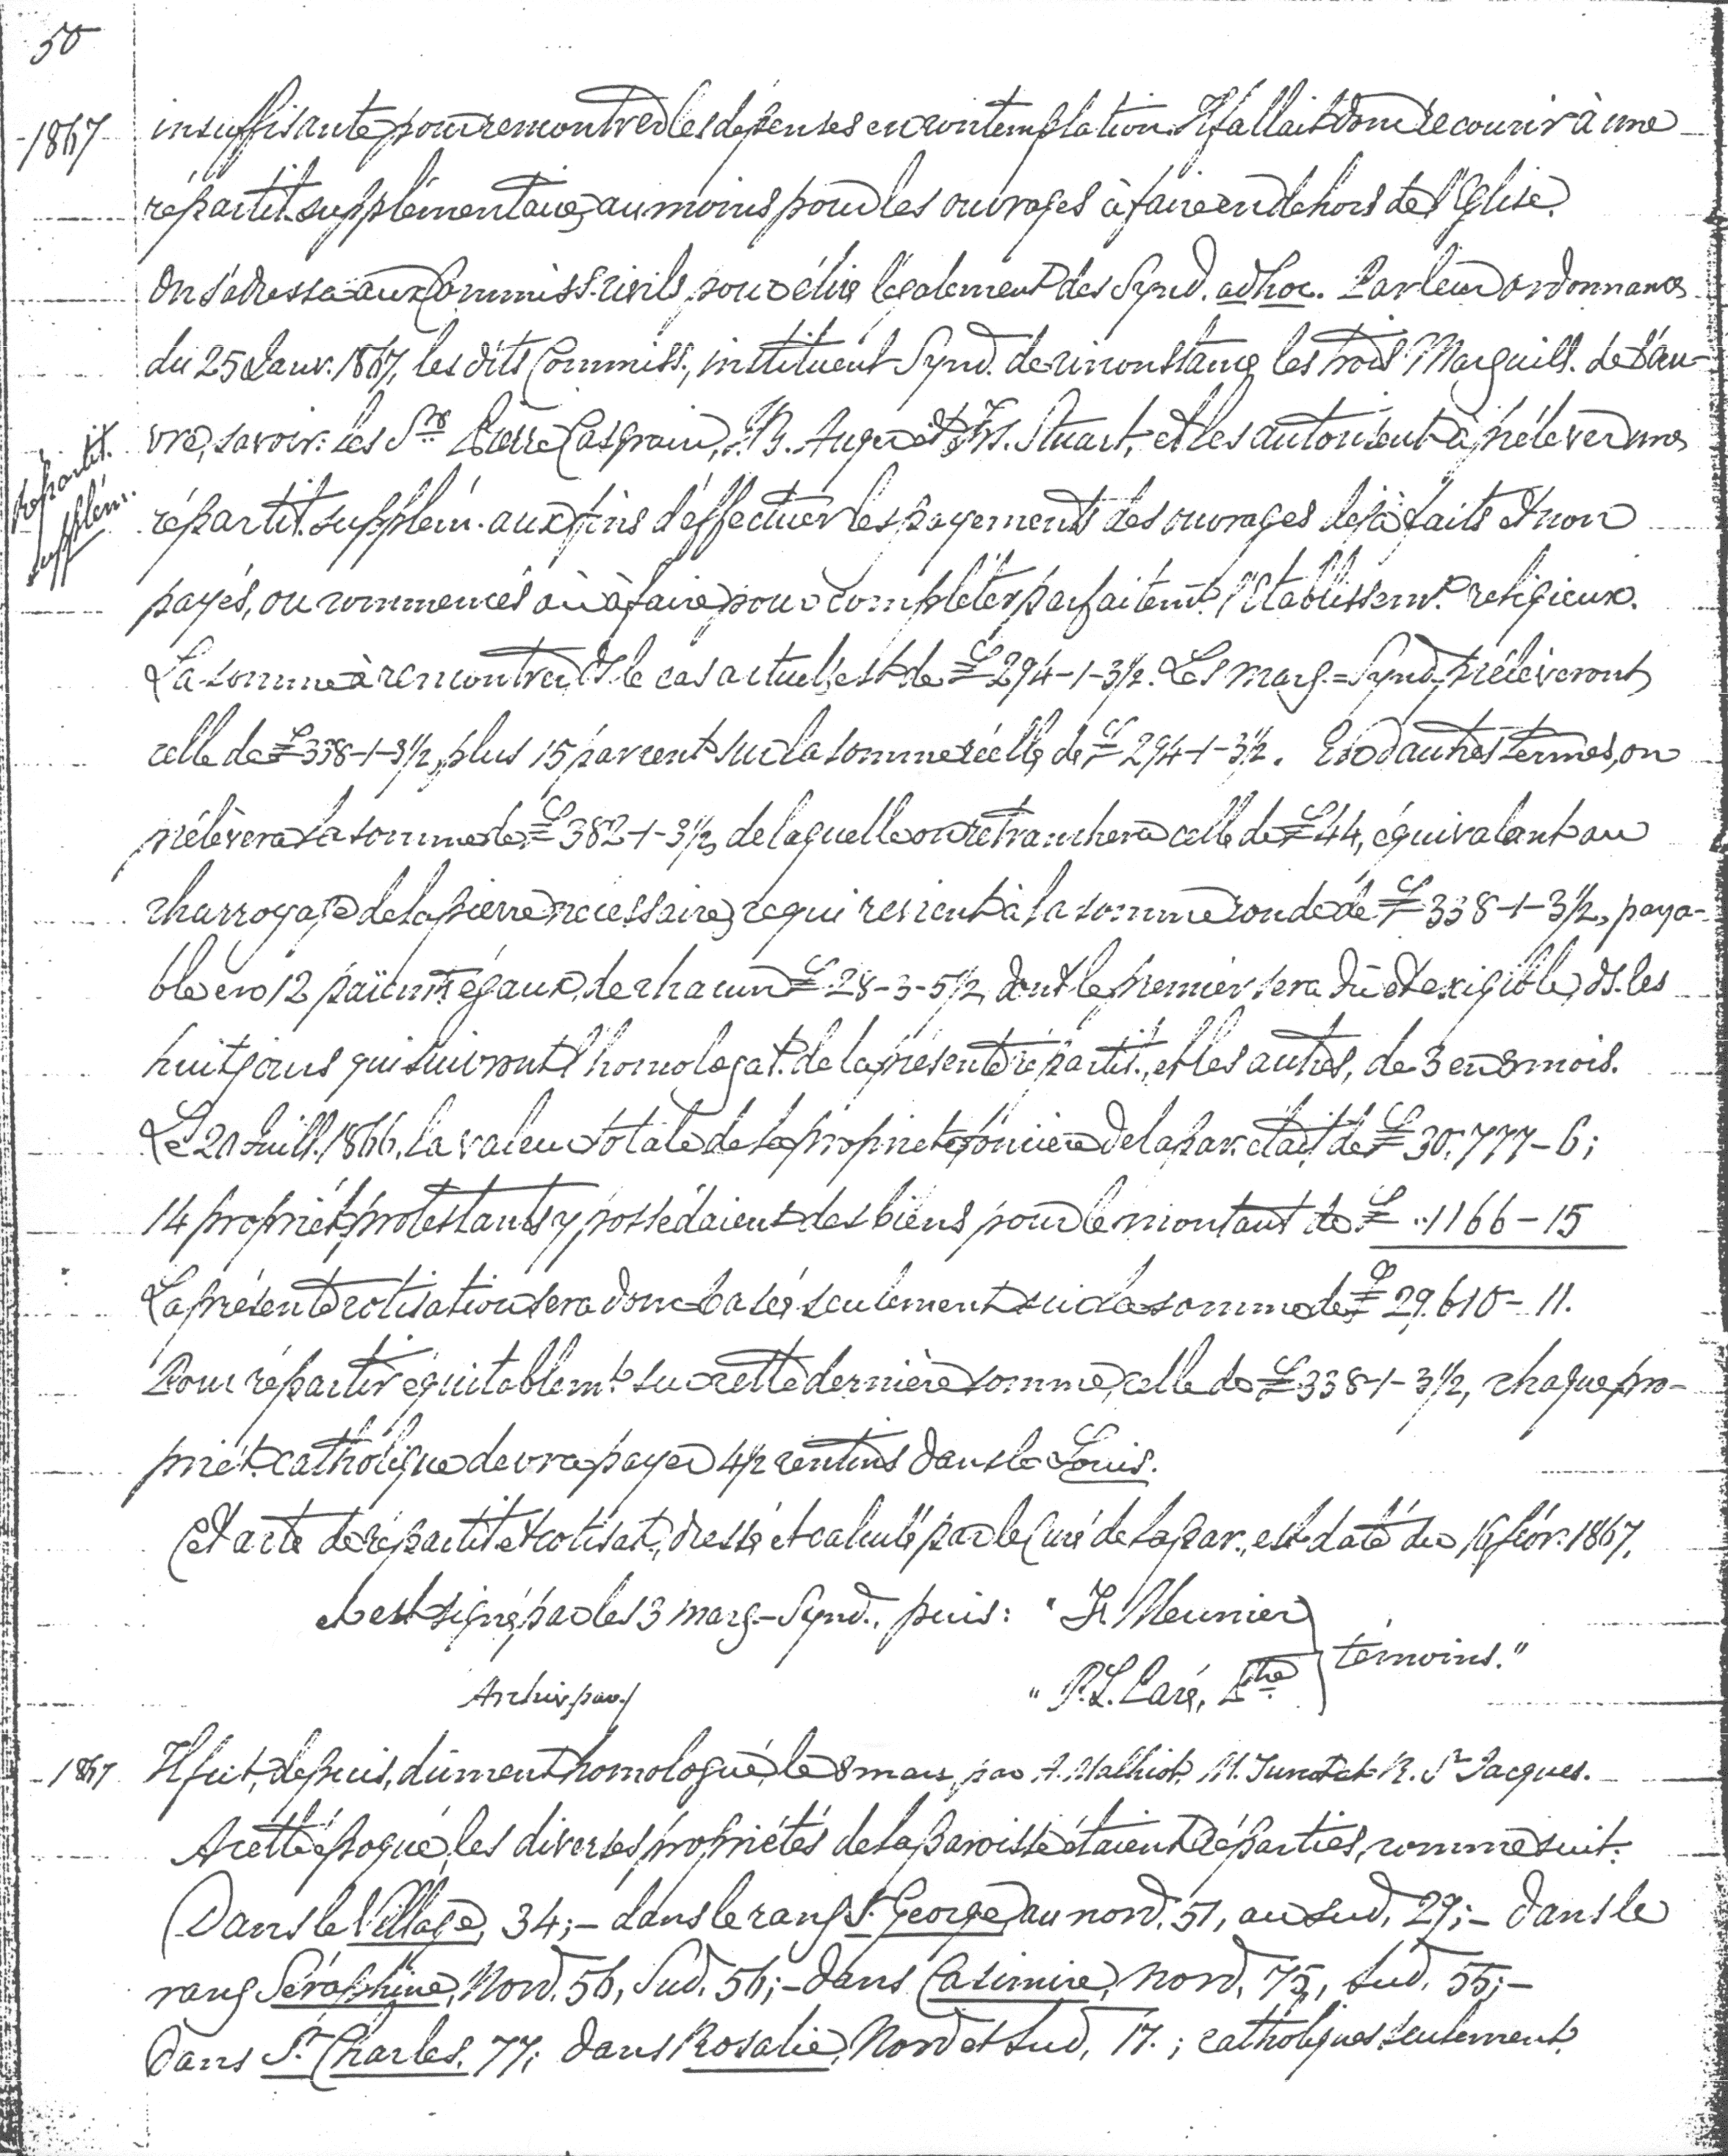 50
1867 insuffisante pour rencontrer les dépenses en contemplation. Il fallait donc recourir à une
répartit. supplémentaire, au moins pour les ouvrages à faire en dehors de l'Eglise.
On s'adressa aux Commiss. civils, pour élire légalement des Synd. ad hoc. Par leur ordonnance
du 25 Janv. 1867, les dits Commiss., instituent Synd. de circonstance les trois Marguill. de l'œu-
vre, savoir: les Srs Pierre Casgrain, J. B. Auger et Frs. Stuart, et les autorisent à prélever une
Répartit.
supplém.
répartit. supplém. aux fins d'effectuer les payements des ouvrages déjà faits et non
payés, ou commencés ou à faire pour compléter parfaitemt. l'Etablissemt. religieux.
La somme à rencontrer ds le cas actuel, est de £ 294-1-3½. Les marg.=Synd. prélèveront
celle de £ 338-1-3½, plus 15 par cent sur la somme réelle de £ 294-1-3½. En d'autres termes, on
prélèvera la somme de £ 382-1-3½, de laquelle on retranchera celle de £ 44, équivalant au
charroyage de la pierre nécessaire, ce qui revient à la somme ronde de £ 338-1-3½, paya-
ble en 12 païemts égaux, de chacun £ 28-3-5½, dont le premier sera dû et exigible, ds. les
huit jours qui suivront l'homologat. de la présente répartit., et les autres, de 3 en 3 mois.
Le 20 Juill. 1866, la valeur totale de la propriété foncière de la par. était de £ 30,777-6;
14 propriét. protestants y possédaient des biens pour le montant de £ ..1166-15
La présente cotisation sera donc basée seulement sur la somme de £ 29.610-11.
Pour répartir équitablemt. sur cette dernière somme, celle de £ 338-1-3½, chaque pro-
priét. catholique devra payer 4½ centins dans le Louis.
Cet acte de répartit. et cotisat., dressé et calculé par le Curé de la par., est daté du 16 févr. 1867,
et est signé par les 3 marg-Synd., puis: " Fr. Meunier
témoins."
Archiv. par. " P. L. Paré, Ptre
1867 Il fut, depuis, dûment homologué, le 8 mars, par A. Malhiot, M. Turcot et R. St Jacques.
A cette époque, les diverses propriétés de la paroisse étaient réparties, comme suit:
Dans le Village, 34;- dans le rang St. George au nord, 51, au sud, 29;- dans le
rang Séraphine, Nord, 56, Sud, 56;- dans Casimire, nord, 75, sud, 55;-
dans St. Charles, 77; dans Rosalie, Nord et Sud, 17.; catholiques seulement.